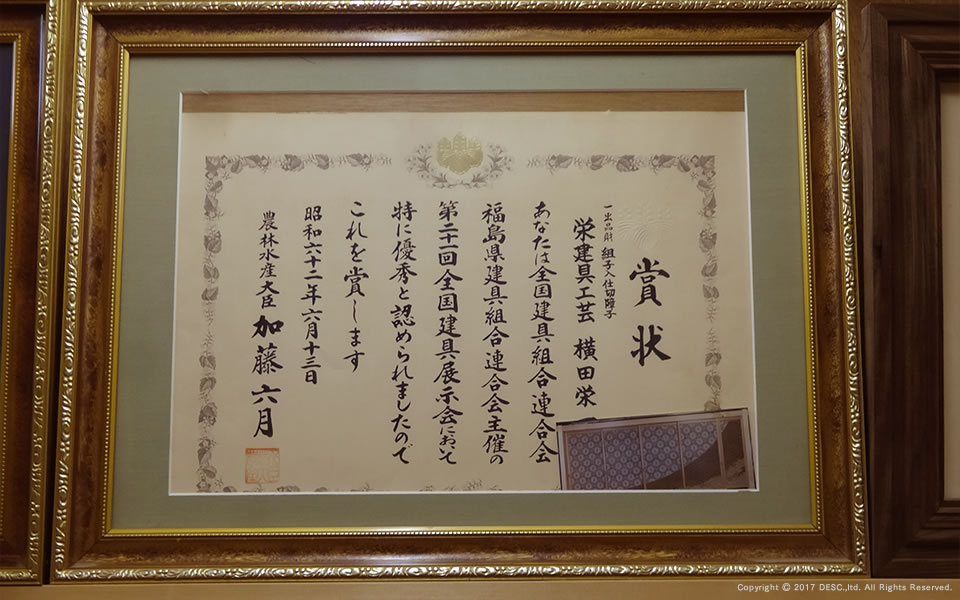 賞状
一出品財 組子入仕切障子
栄建具工芸 横田栄
あなたは全国建具組合連合会
福島県建具組合連合会主催の
第二十一回全国建具展示会において
特に優秀と認められましたので
これを賞します
昭和六十二年六月十三日
農林水産大臣 加藤六月
Copyright © 2017 DESC.,ltd. All Rights Reserved.